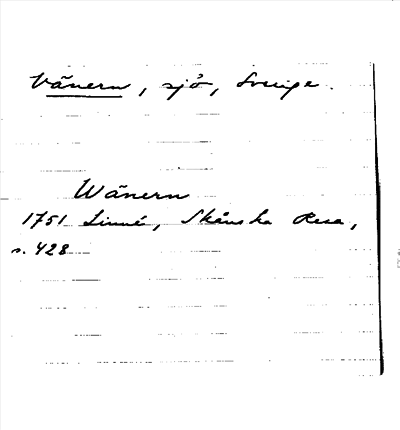 Vänern, sjö, Sverige.
Wänern
1751 Linné, Skånska Resa,
s. 428